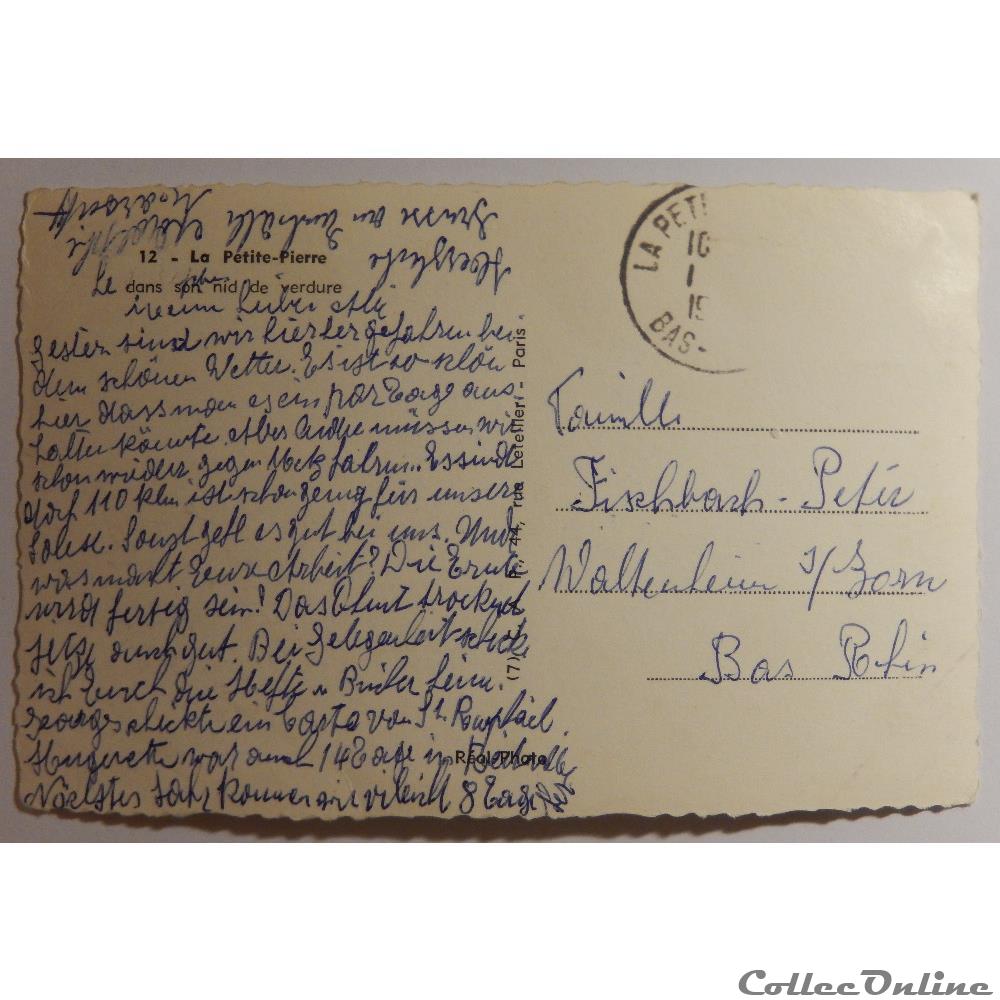 12 - La Petite-Pierre
dans son nid de verdure
Le
Gestern sind wir hierher gefahren bei
dem schönen Wetter. Es ist so schön
hier dass man es ein par Tage aus
halten könnte. Aber müssen wir
schon wieder gegen Metz fahren. Es sind
110 klm ist schon genug für unsere
Sonst geht es gut bei uns. Und
was macht Eure Arbeit? Die Ernte
wird fertig sein! Das Ohmt trocknet
jetzt auch gut. Bei Gelegenheit schicke
ich Euch die Hefte u Bücher heim.
George schickte ein Carte von St. Raphael
Huguette war auch 14 Tage in
Nächstes Jahr kommen wir vileicht 8 Tage
Herzliche
Grüsse an
LA PETI
10
1
19
BAS-
Famille
Fischbach-Peter
Waltenheim s/Zorn
Bas Rhin
(7) 44, rue Letellier - Paris
Réal-Photo
CollecOnline